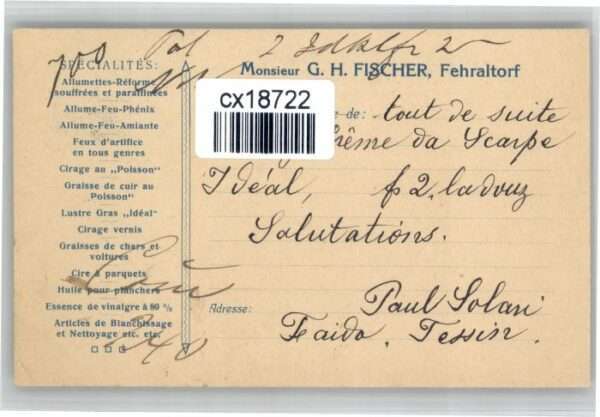 700
2 Idklfr 2
SPÉCIALITÉS:
Allumettes-Réforme
souffrées et paraffinées
Allume-Feu-Phénix
Allume-Feu-Amiante
Feux d'artifice
en tous genres
Cirage au „Poisson"
Graisse de cuir au
„Poisson"
Lustre Gras „Idéal"
Cirage vernis
Graisses de chars et
voitures
Cire à parquets
Huile pour planchers
Essence de vinaigre à 80 %
Articles de Blanchissage
et Nettoyage etc. etc.
Monsieur G. H. FISCHER, Fehraltorf
cx18722
de: tout de suite
da Scarpe
Idéal, f 2. la douz
Salutations.
Adresse: Paul Solari
Faido, Tessin.